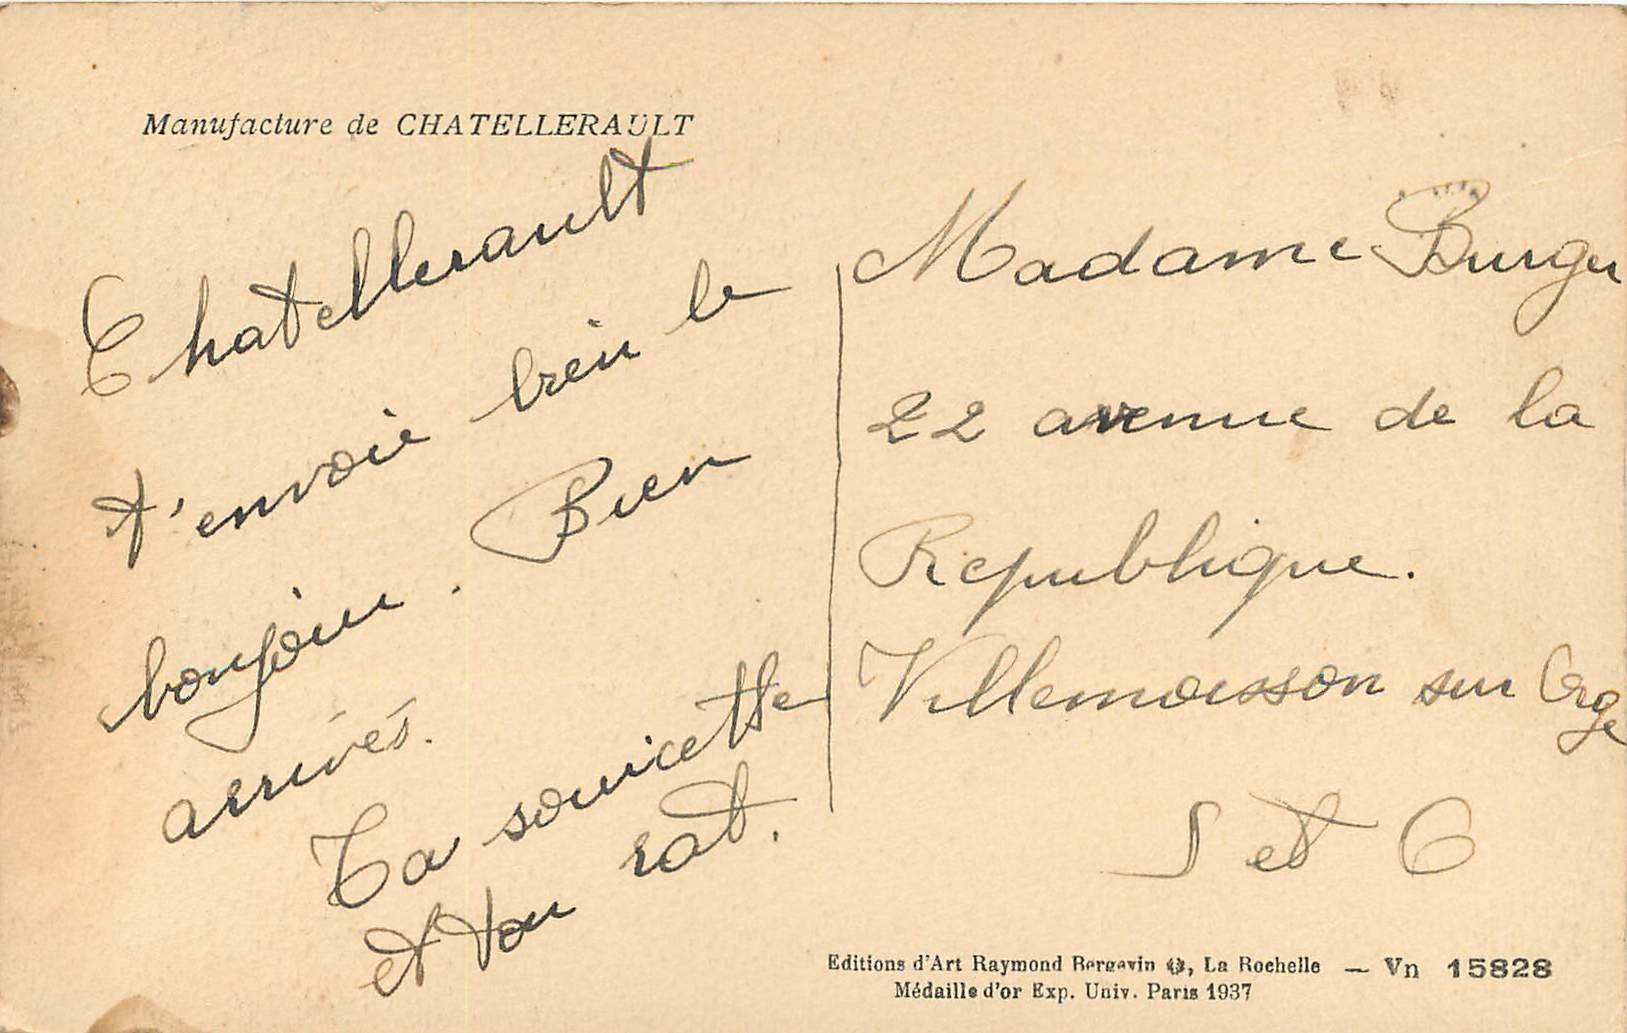 Manufacture de CHATELLERAULT
Chatellerault
t'envoie bien le
bonjour. Bien
arrivés.
Ta souricette
et ton rat.
Madame Burger
22 avenue de la
Republique.
Villemoisson sur Orge
S et O
Editions d'Art Raymond Bergevin, La Rochelle — Vn 15828
Médaille d'or Exp. Univ. Paris 1937